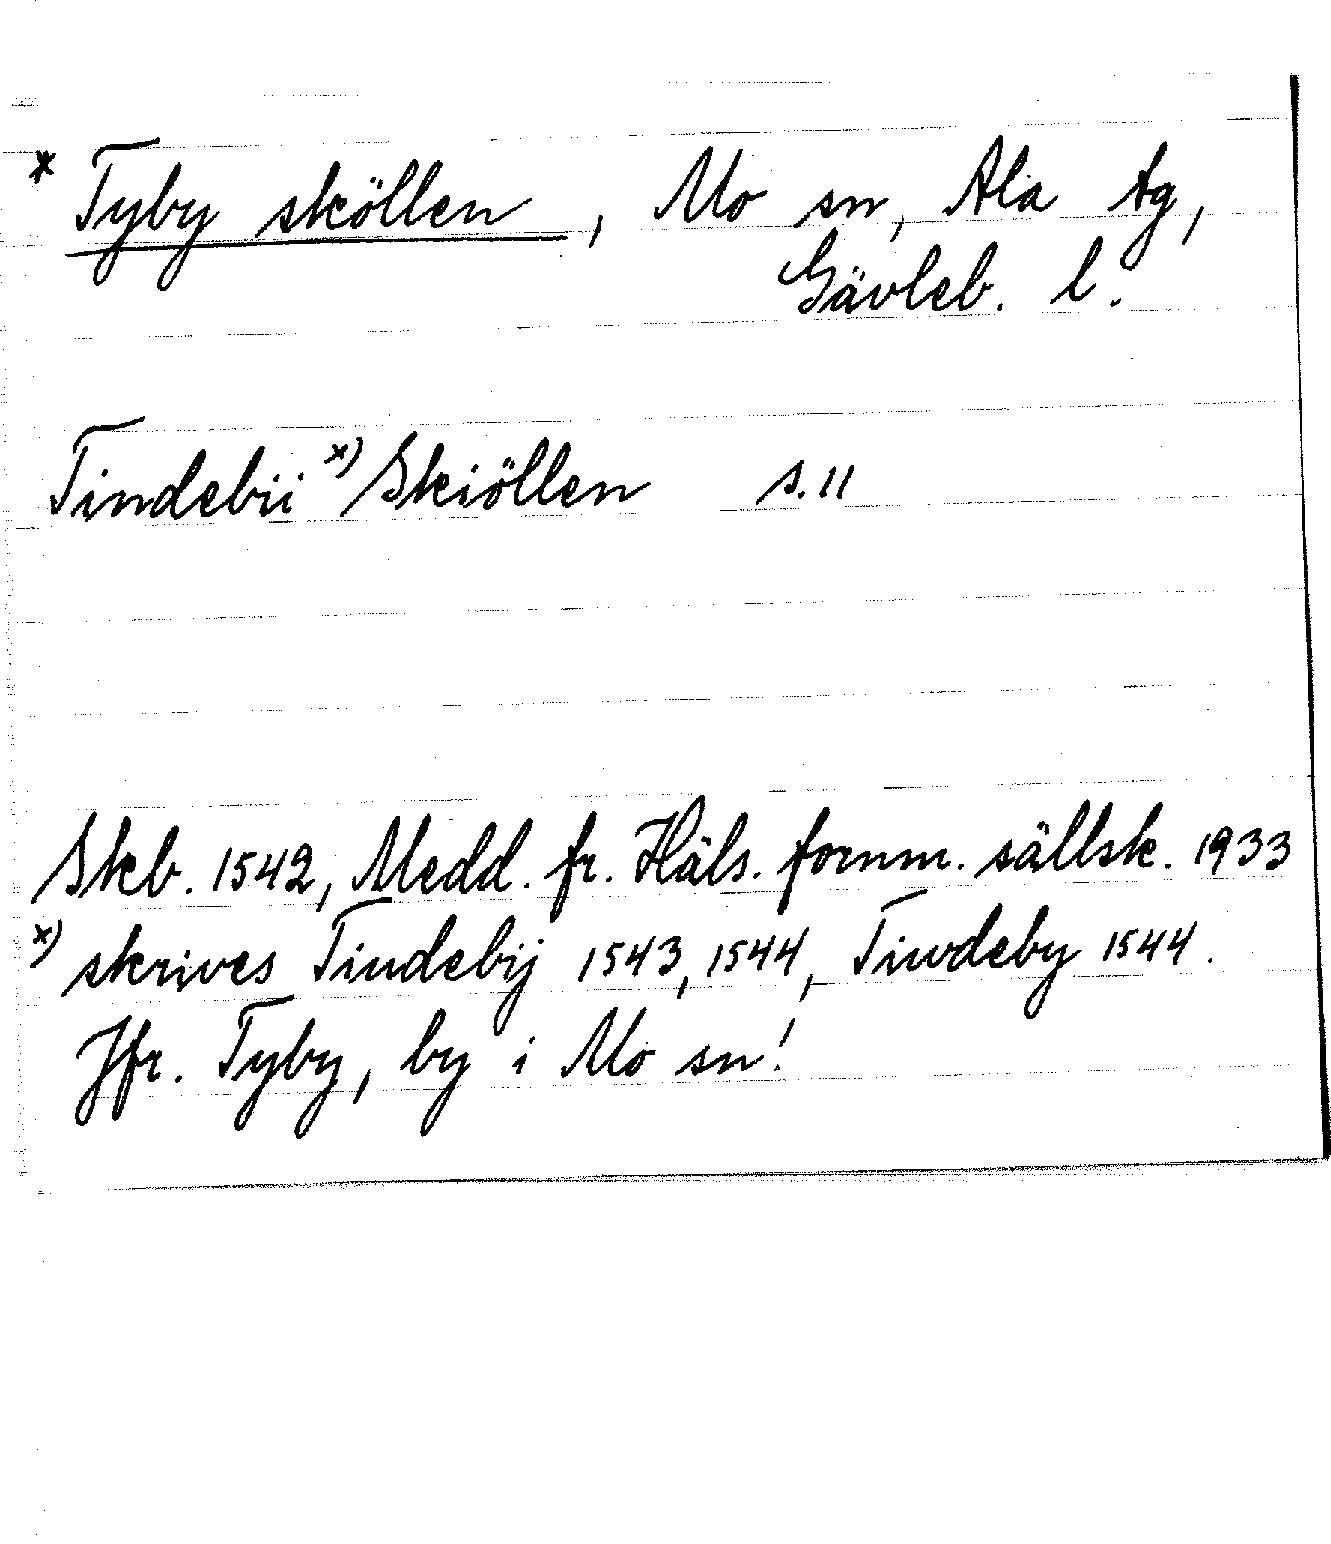 * Tyby sköllen, Mo sn, Ala tg,
Gävleb. l.
Tindebii x) Skiöllen s. 11
Skb. 1542, Medd. fr. Häls. fornm. sällsk. 1933
x) skrives Tindebij 1543, 1544, Tiwdeby 1544.
Jfr. Tyby, by i Mo sn!